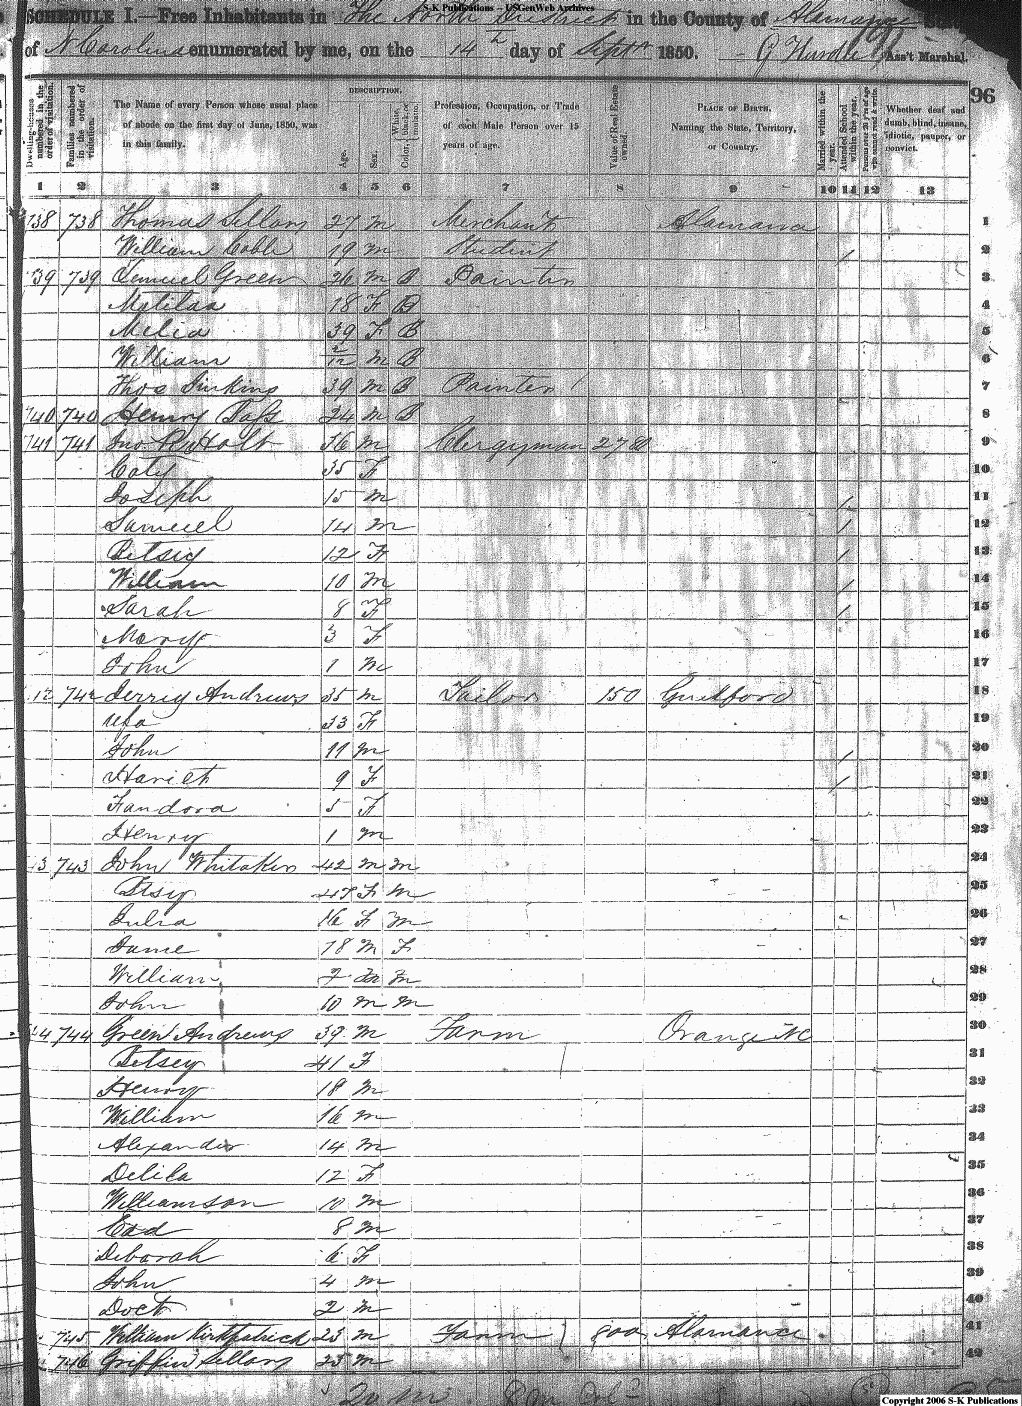 S-K Publications – USGenWeb Archives
SCHEDULE I.—Free Inhabitants in The North District in the County of Alamance State
of N Carolina enumerated by me, on the 14th day of Sept 1850. Ass't Marshal.
96
Dwelling-houses numbered in the order of visitation.
Families numbered in the order of visitation.
The Name of every Person whose usual place of abode on the first day of June, 1850, was in this family.
DESCRIPTION.
Age.
Sex.
White, black, or mulatto.
Color,
Profession, Occupation, or Trade of each Male Person over 15 years of age.
Value of Real Estate owned.
PLACE OF BIRTH.
Naming the State, Territory, or Country.
Married within the year.
Attended School within the year.
Persons over 20 y'rs of age who cannot read & write.
Whether deaf and dumb, blind, insane, idiotic, pauper, or convict.
1 2 3 4 5 6 7 8 9 10 11 12 13
738 738 Thomas Sellars 27 m Merchant 1
William Coble 19 m Student / 2
739 739 Samuel Green 26 m B Painter 3
Matilda 18 F B 4
Melia 39 F B 5
William 2/12 m B 6
Thos 39 m B Painter 7
740 740 Henry 24 m B 8
741 741 Jno R Holt 36 m Clergyman 9
Caty 35 F 10
Joseph 15 m / 11
Samuel 14 m / 12
Betsey 12 F / 13
William 10 m / 14
Sarah 8 F / 15
Mary 3 F 16
John 1 m 17
12 742 Andrews 35 m Tailor 150 Guilford 18
33 F 19
John 11 m / 20
Hariet 9 F / 21
Fandora 5 F 22
Henry 1 m 23
3 743 John Whitaker 42 m m 24
Betsy F m 25
Julia 16 F m 26
Jame 18 m F 27
William 7 m m 28
John 10 m m 29
44 744 Green Andrews 39 m Farm Orange NC 30
Betsey 41 F 31
Henry 18 m 32
William 16 m 33
Alexander 14 m 34
Delila 12 F 35
Williamson 10 m 36
8 m 37
Deborah 6 F 38
John 4 m 39
Doct 2 m 40
745 William Kirkpatrick 23 m Farm 800 Alamance 41
746 Griffin Sellars 25 m 42
Copyright 2006 S-K Publications